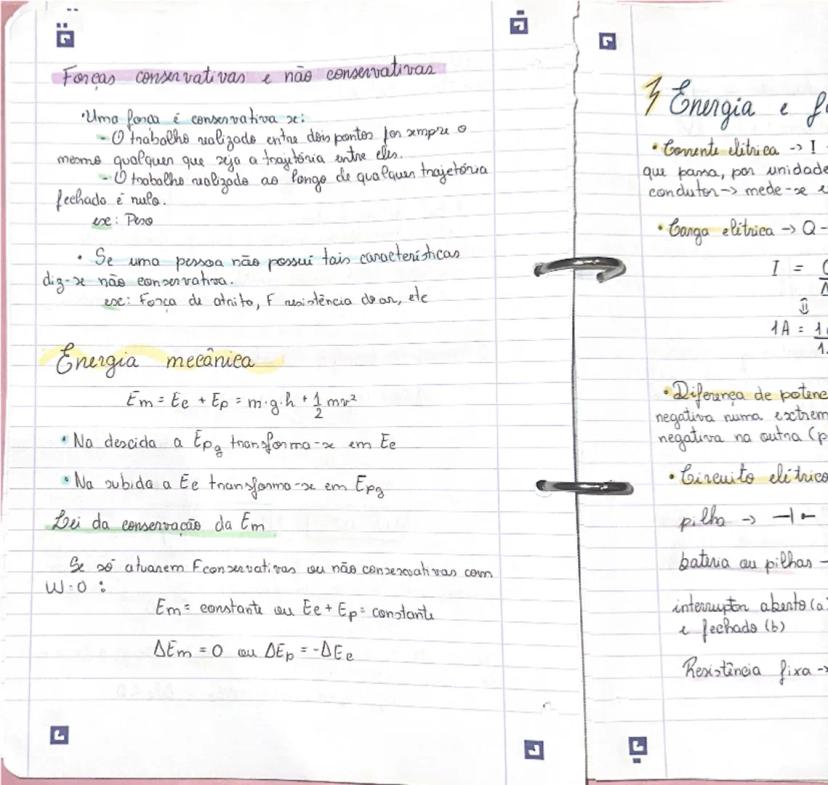 Forças conservativas e não conservativas
• Uma força é conservativa se:
- O trabalho realizado entre dois pontos for sempre o
mesmo qualquer que seja a trajetória entre eles.
- O trabalho realizado ao longo de qualquer trajetória
fechado é nulo.
ex: Peso
• Se uma pessoa não possui tais características
diz-se não conservativa.
ex: Força de atrito, F resistência do ar, etc
Energia mecânica
Em = Ec + Ep = m·g·h + 1/2 mv²
• Na descida a Epg transforma-se em Ec
• Na subida a Ec transforma-se em Epg
Lei da conservação da Em
Se só atuarem Fconservativas ou não conservativas com
W=0:
Em = constante ou Ec + Ep = constante
ΔEm = 0 ou ΔEp = -ΔEc
Energia e f
• Corrente elétrica -> I
que passa, por unidade
condutor -> mede-se e
• Carga elétrica -> Q -
I =
⇕
1A = 1
1
• Diferença de potenc
negativa numa extrem
negativa na outra (p
• Circuito elétrico
pilha ->
bateria ou pilhas -
interruptor aberto (a)
e fechado (b)
Resistência fixa ->